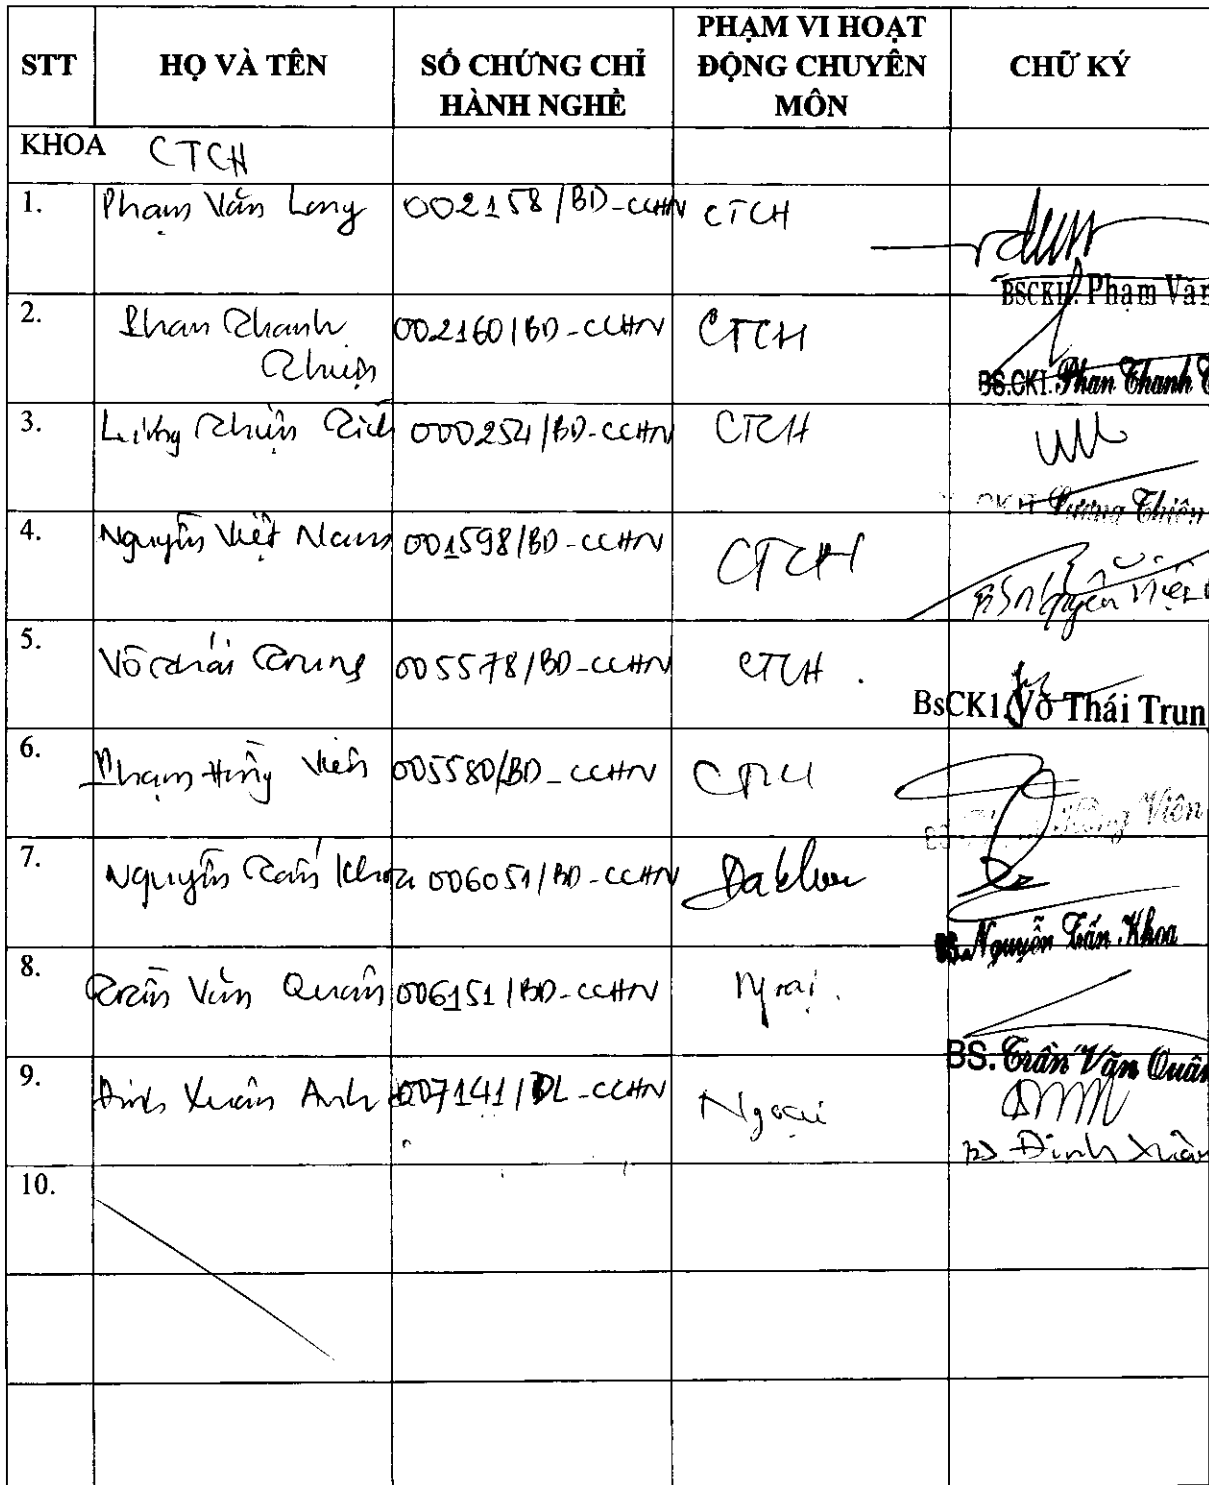 STT
HỌ VÀ TÊN
SỐ CHỨNG CHỈ
HÀNH NGHỀ
PHẠM VI HOẠT
ĐỘNG CHUYÊN
MÔN
CHỮ KÝ
KHOA CTCH
1. Phạm Văn Long 002158/BD-CCHN CTCH
BSCKII. Phạm Văn
2. Phan Thanh
Thiện
002160/BD-CCHN CTCH
BS.CKI. Phan Thanh
3. Lương Thiện Tích 000254/BD-CCHN CTCH
Lương Thiện
4. Nguyễn Việt Nam 001598/BD-CCHN CTCH
BS Nguyễn Việt
5. Võ Thái Trung 005578/BD-CCHN CTCH.
BsCK1. Võ Thái Trun
6. Phạm Hồng Viên 005580/BD-CCHN CTCH
BS Hồng Viên
7. Nguyễn Tấn Khoa 006051/BD-CCHN Đa khoa
BS. Nguyễn Tấn Khoa
8. Trần Văn Quân 006151/BD-CCHN Ngoại.
BS. Trần Văn Quân
9. Đinh Xuân Anh 007141/ĐL-CCHN Ngoại
BS Đinh Xuân
10.